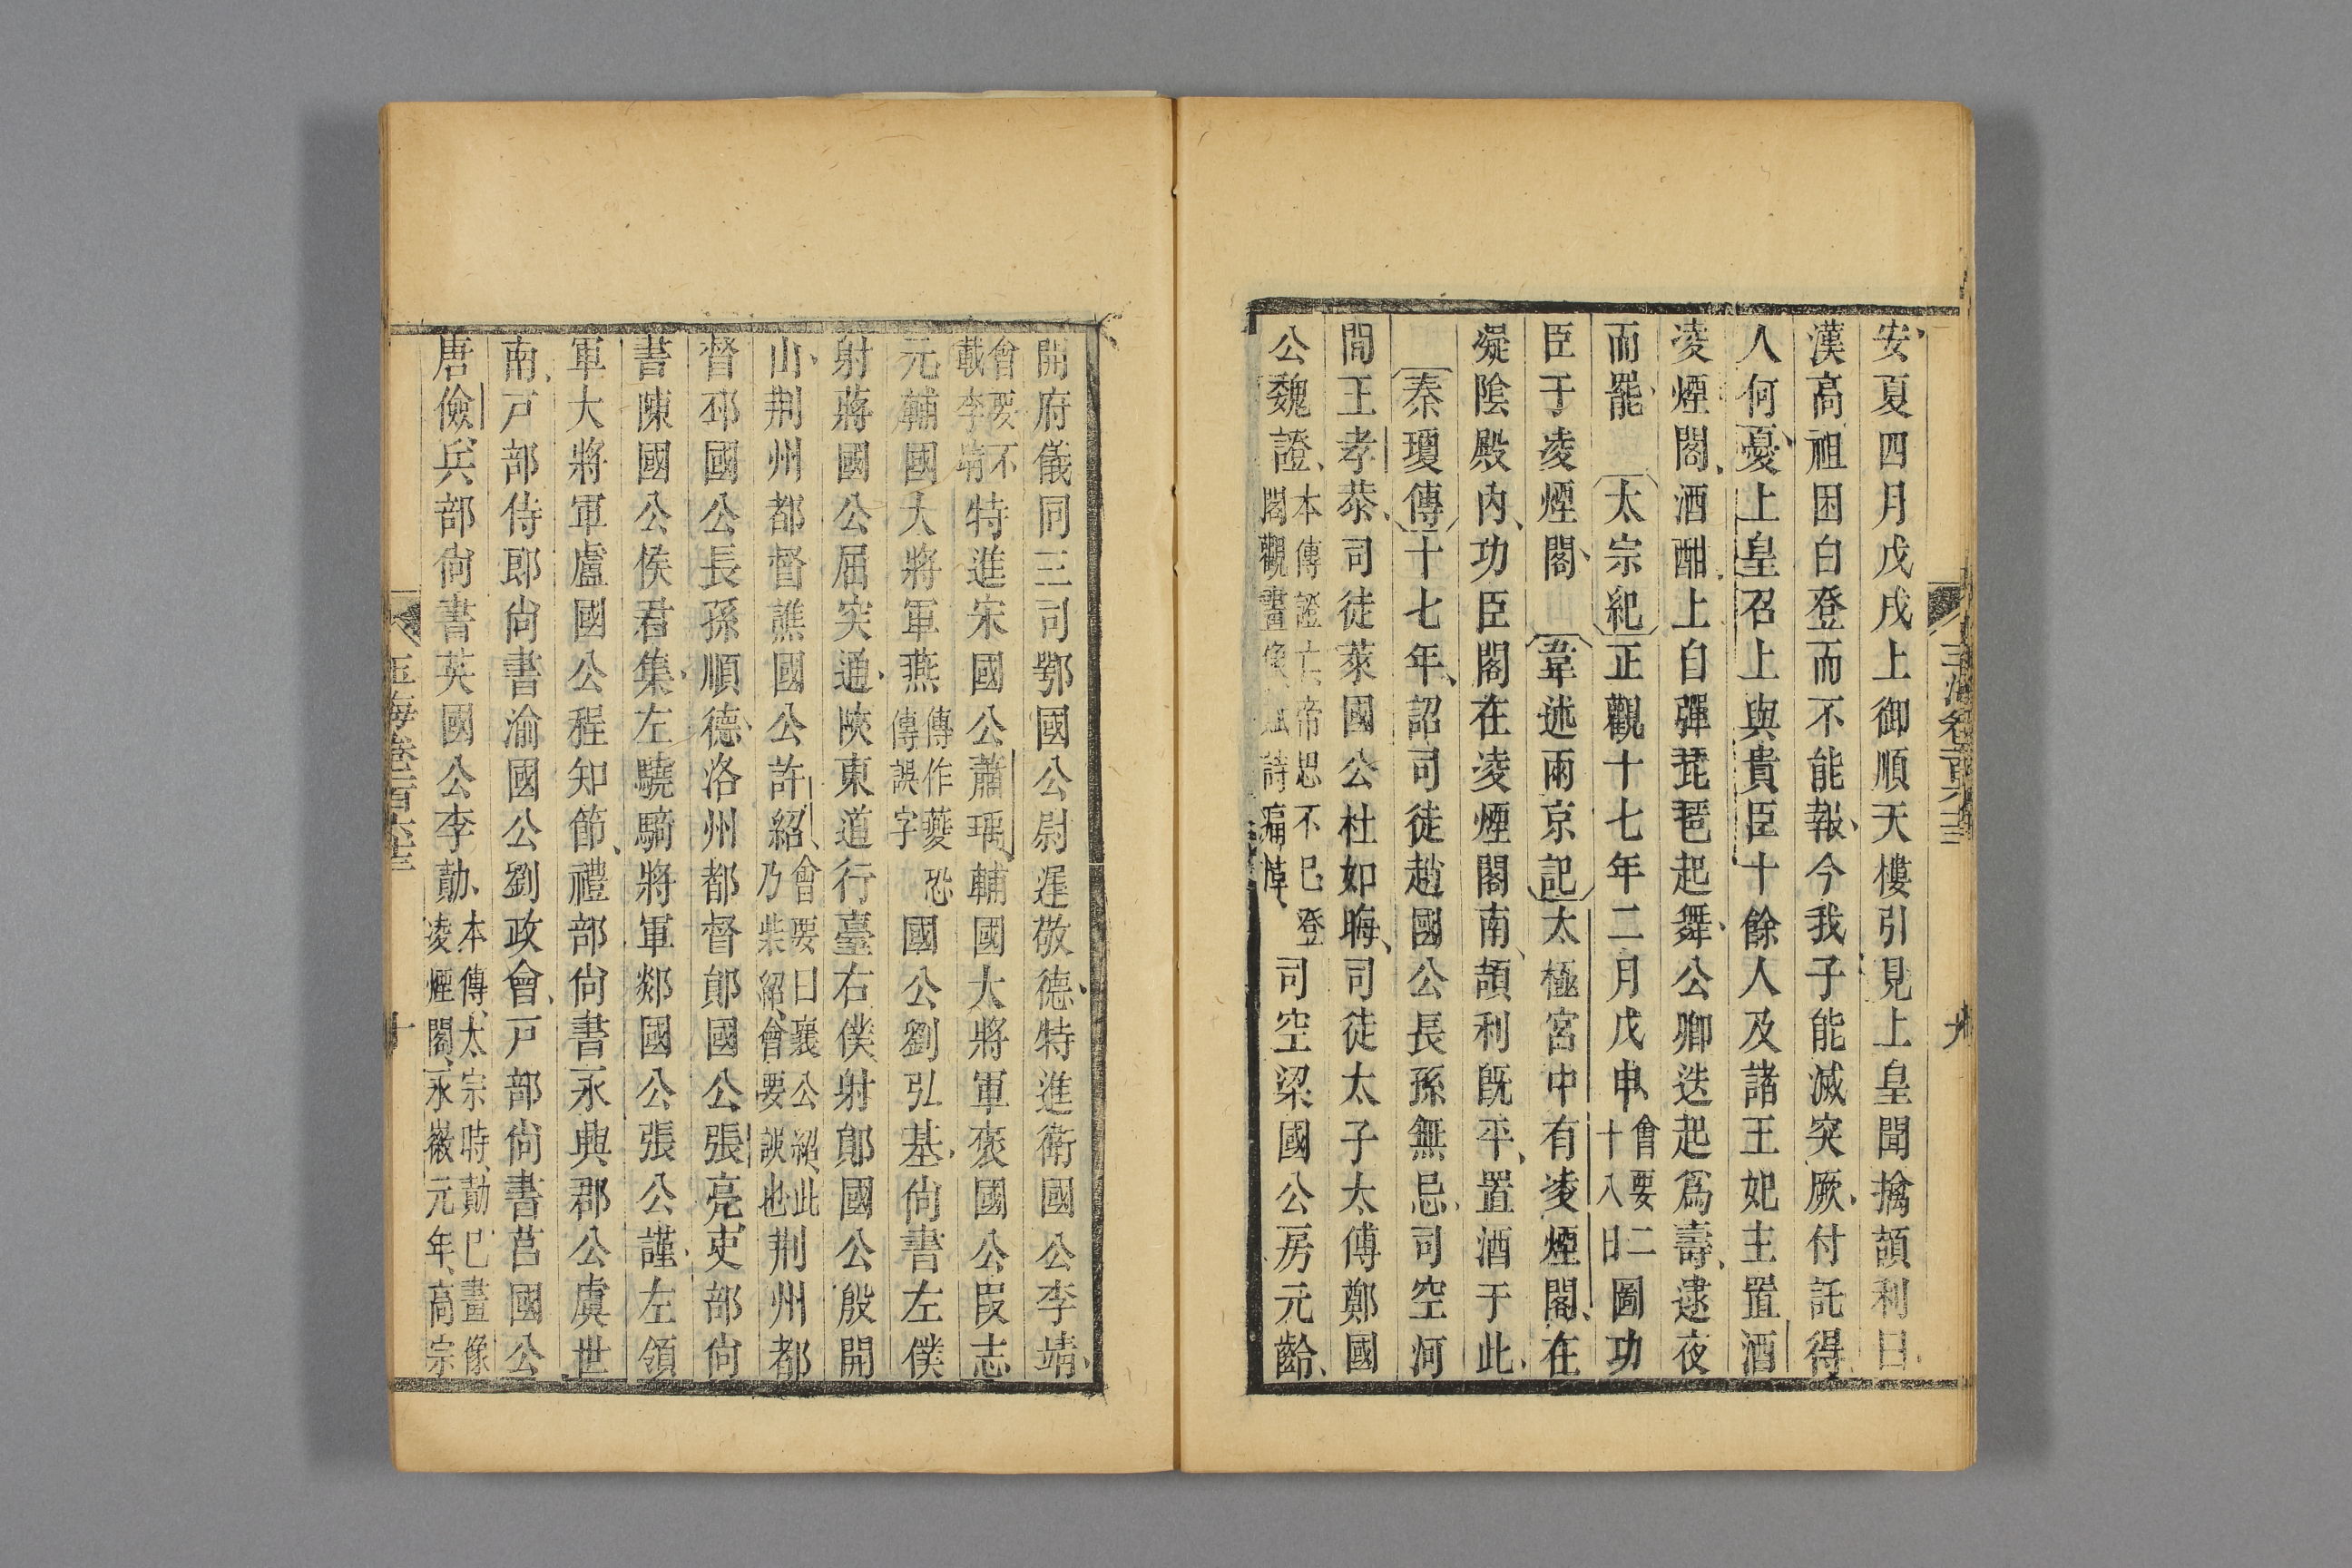 安夏四月戊戌上御順天樓引見上皇聞擒頡利曰
漢高祖困白登而不能報今我子能滅突厥付託得
人何憂上皇召上與貴臣十餘人及諸王妃主置酒
凌煙閣酒酣上自彈琵琶起舞公卿迭起爲壽逮夜
而罷 太宗紀正觀十七年二月戊申會要二十八日圖功
臣于凌煙閣 韋述兩京記太極宮中有凌煙閣在
凝陰殿內功臣閣在凌煙閣南頡利旣平置酒于此
秦瓊傳十七年詔司徒趙國公長孫無忌司空河
間王孝恭司徒萊國公杜如晦司徒太子太傅鄭國
公魏證本傳證亡帝思不已登閣觀畫像賦詩痛悼司空梁國公房元齡
玉海卷一百六十三
九
開府儀同三司鄂國公尉遲敬德特進衛國公李靖
會要不載李靖特進宋國公蕭瑀輔國大將軍襃國公段志
元輔國大將軍燕傳作夔恐傳誤字國公劉弘基尙書左僕
射蔣國公屈突通陝東道行臺右僕射鄖國公殷開
山荆州都督譙國公許紹會要曰襄公紹此乃柴紹會要誤也荆州都
督邳國公長孫順德洛州都督鄖國公張亮吏部尙
書陳國公侯君集左驍騎將軍郯國公張公謹左領
軍大將軍盧國公程知節禮部尙書永興郡公虞世
南戸部侍郎尙書渝國公劉政會戸部尙書莒國公
唐儉兵部尙書英國公李勣本傳太宗時勣已畫像凌煙閣永徽元年高宗
玉海卷一百六十三
十